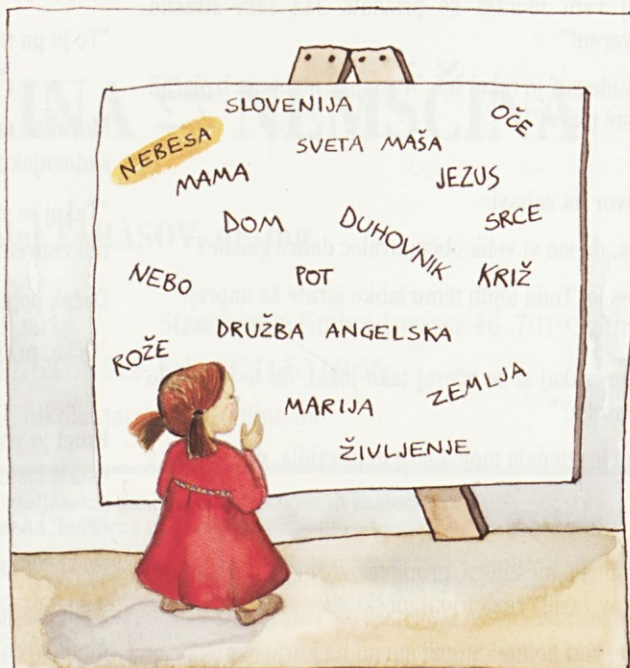 SLOVENIJA
OČE
NEBESA
SVETA MAŠA
MAMA
JEZUS
DOM
DUHOVNIK
SRCE
NEBO
POT
KRIŽ
DRUŽBA ANGELSKA
ROŽE
MARIJA
ZEMLJA
ŽIVLJENJE